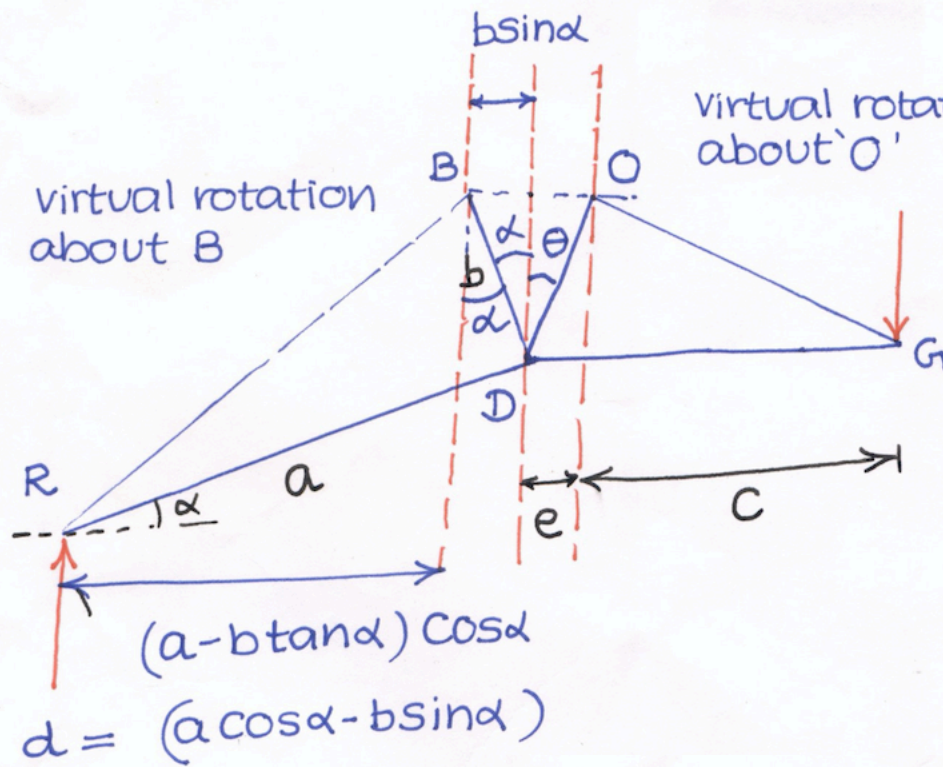 bsinα
virtual rota
about 'O'
B
O
virtual rotation
about B
α
θ
b
α
G
D
R
a
α
e
C
(a-btanα) cosα
d = (acosα-bsinα)